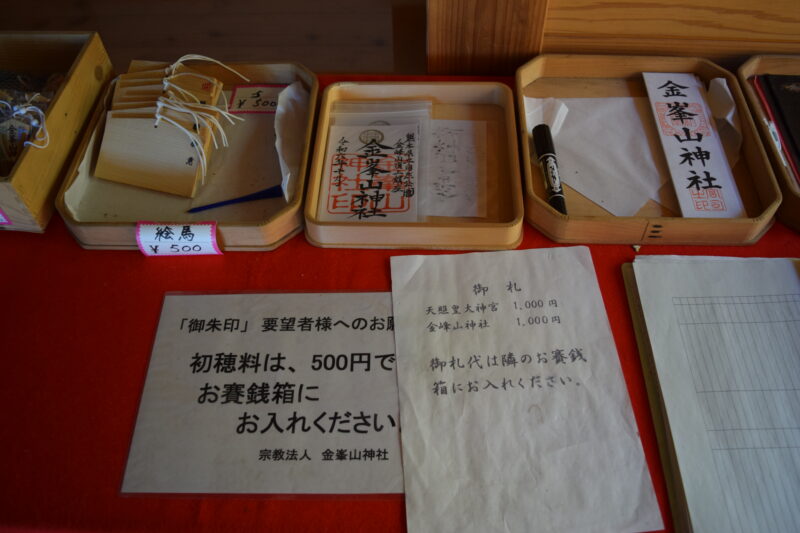 ¥500
絵馬
¥500
金峯山神社
金峯山神社
「御朱印」要望者様へのお願
初穂料は、500円で
お賽銭箱に
お入れください
宗教法人 金峯山神社
御札
天照皇大神宮 1,000円
金峰山神社 1,000円
御札代は隣のお賽銭
箱にお入れください。
三